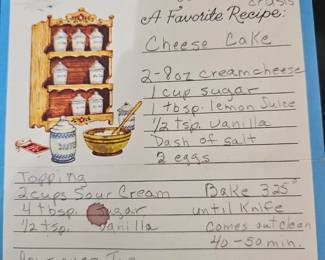 crusts
A Favorite Recipe:
Cheese Cake
2-8oz creamcheese
1 cup sugar
1 tbsp. lemon Juice
1/2 tsp. vanilla
Dash of salt
2 eggs
Topping
2 cups Sour Cream
4 tbsp. Sugar
1/2 tsp. Vanilla
Bake 325°
until Knife
comes out clean
40-50 min.